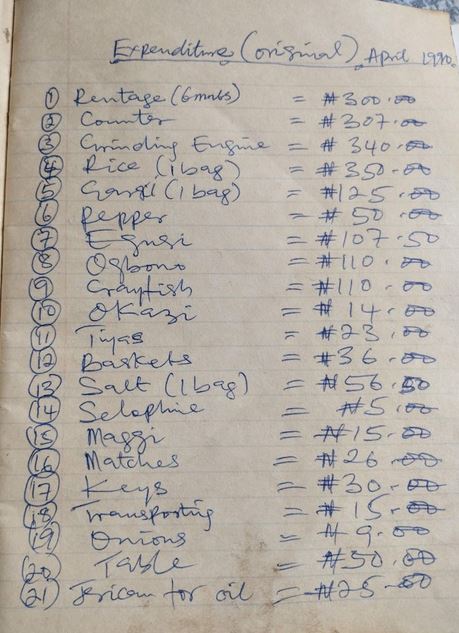 Expenditure (original) April 1990.
① Rentage (6 mnts) = ₦300.00
② Counter = ₦307.00
③ Grinding Engine = ₦340.00
④ Rice (1 bag) = ₦350.00
⑤ Garri (1 bag) = ₦125.00
⑥ Pepper = ₦50.00
⑦ Egusi = ₦107.50
⑧ Ogbono = ₦110.00
⑨ Crayfish = ₦110.00
⑩ Okazi = ₦14.00
⑪ = ₦23.00
⑫ Baskets = ₦36.00
⑬ Salt (1 bag) = ₦56.50
⑭ Selophine = ₦5.00
⑮ Maggi = ₦15.00
⑯ Matches = ₦26.00
⑰ Keys = ₦30.00
⑱ Transporting = ₦15.00
⑲ Onions = ₦9.00
⑳ Table = ₦50.00
㉑ Jericam for oil = ₦25.00